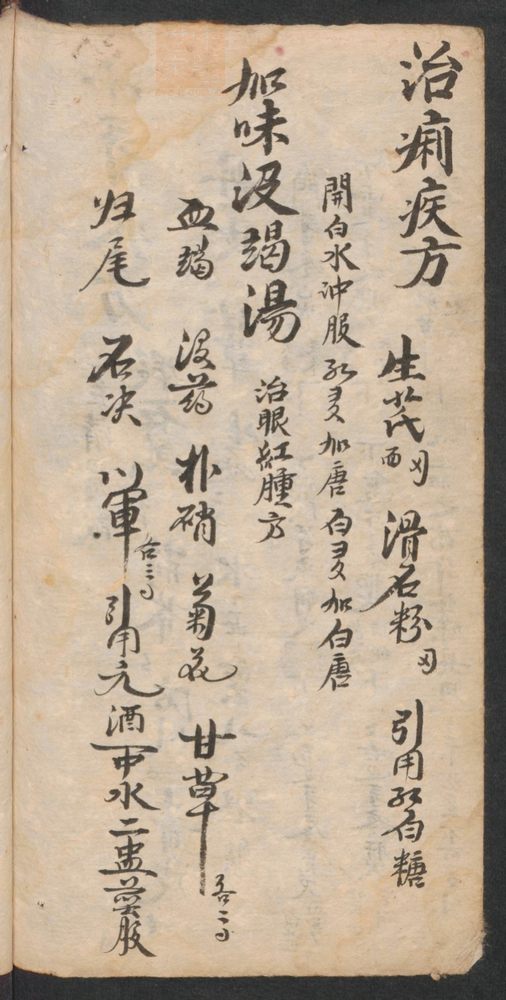 治痢疾方 生芪 滑石粉 引用红白糖
開白水沖服 红多加唐 白多加白唐
加味没竭湯 治眼紅腫方
血竭 没药 朴硝 菊花 甘草
归尾 石决 川軍 引用元酒 水二盅煎服